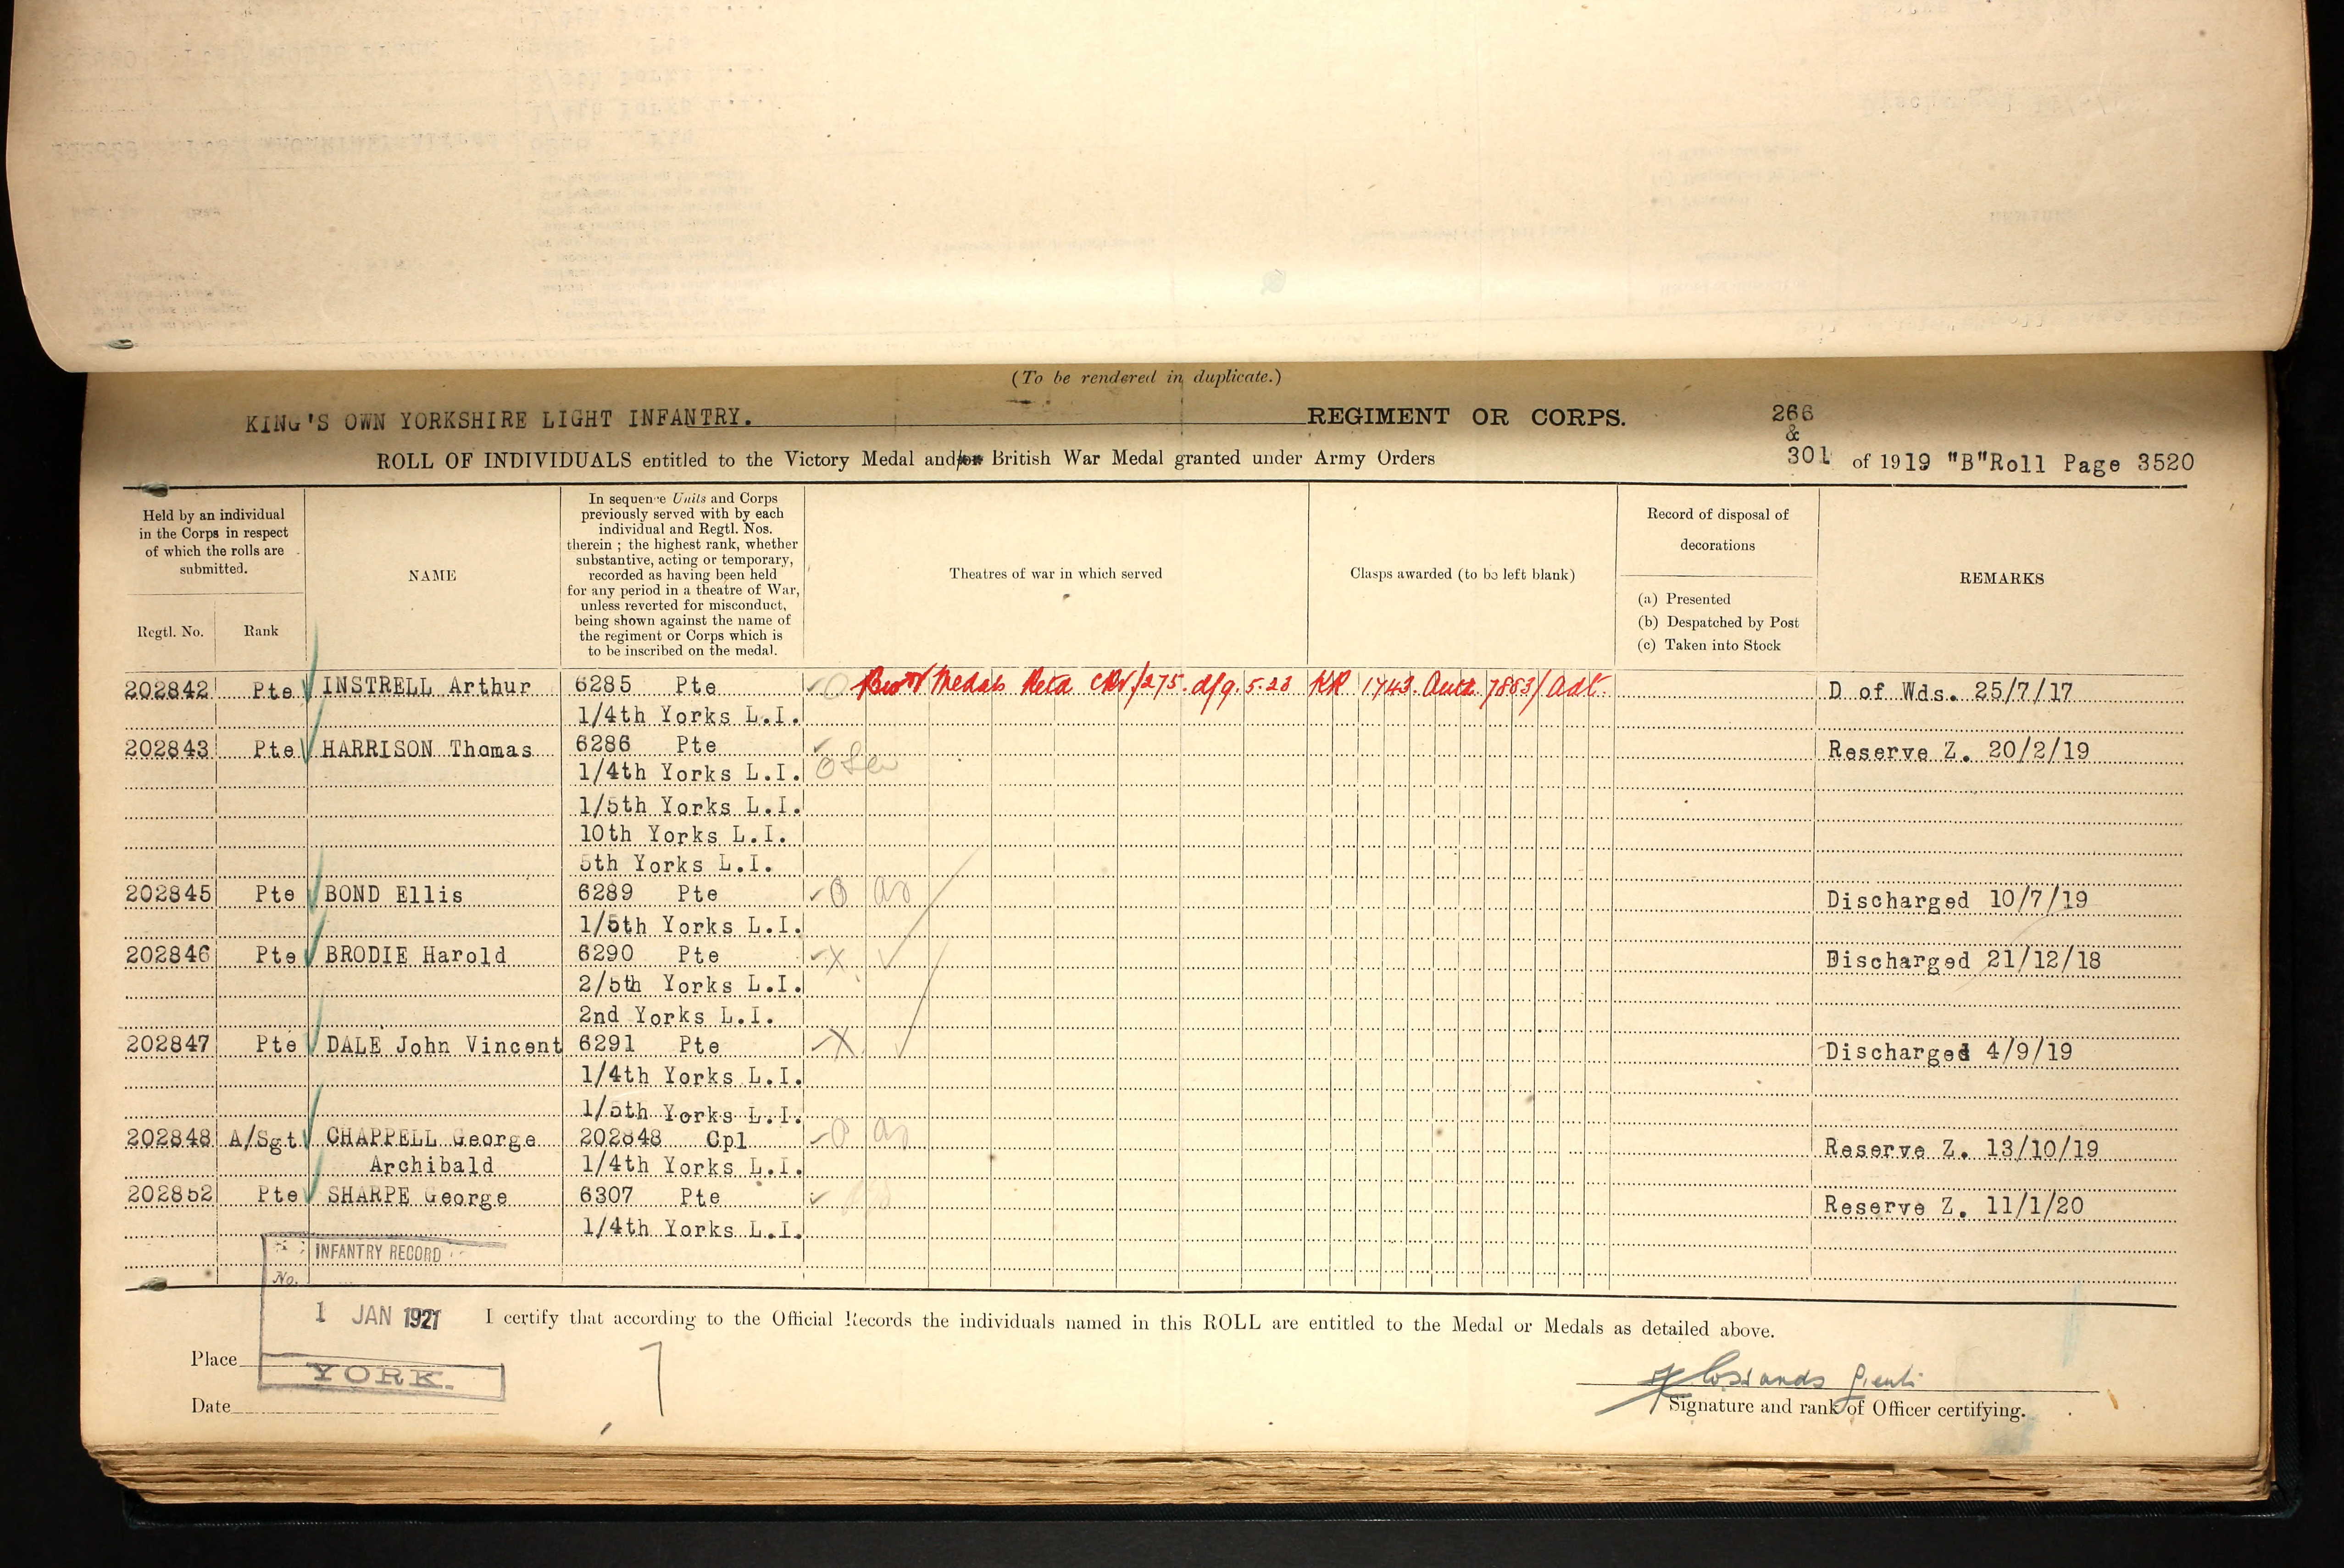 (To be rendered in duplicate.)
KING'S OWN YORKSHIRE LIGHT INFANTRY. REGIMENT OR CORPS. 266
&
ROLL OF INDIVIDUALS entitled to the Victory Medal and/or British War Medal granted under Army Orders 301 of 1919 "B"Roll Page 3520
Held by an individual in the Corps in respect of which the rolls are submitted.
Regtl. No. Rank
NAME
In sequence Units and Corps
previously served with by each
individual and Regtl. Nos.
therein ; the highest rank, whether
substantive, acting or temporary,
recorded as having been held
for any period in a theatre of War,
unless reverted for misconduct,
being shown against the name of
the regiment or Corps which is
to be inscribed on the medal.
Theatres of war in which served
Clasps awarded (to be left blank)
Record of disposal of
decorations
(a) Presented
(b) Despatched by Post
(c) Taken into Stock
REMARKS
202842 Pte INSTRELL Arthur 6285 Pte Medals Retd /275. d/9.5.23 KR 1743. 7883/Adt. D of Wds. 25/7/17
1/4th Yorks L.I.
202843 Pte HARRISON Thomas 6286 Pte Reserve Z. 20/2/19
1/4th Yorks L.I.
1/5th Yorks L.I.
10th Yorks L.I.
5th Yorks L.I.
202845 Pte BOND Ellis 6289 Pte Discharged 10/7/19
1/5th Yorks L.I.
202846 Pte BRODIE Harold 6290 Pte X Discharged 21/12/18
2/5th Yorks L.I.
2nd Yorks L.I.
202847 Pte DALE John Vincent 6291 Pte X Discharged 4/9/19
1/4th Yorks L.I.
1/5th Yorks L.I.
202848 A/Sgt CHAPPELL George 202848 Cpl Reserve Z. 13/10/19
Archibald 1/4th Yorks L.I.
202852 Pte SHARPE George 6307 Pte Reserve Z. 11/1/20
1/4th Yorks L.I.
INFANTRY RECORD
No.
1 JAN 1921
I certify that according to the Official Records the individuals named in this ROLL are entitled to the Medal or Medals as detailed above.
Place
YORK.
Date
Signature and rank of Officer certifying.